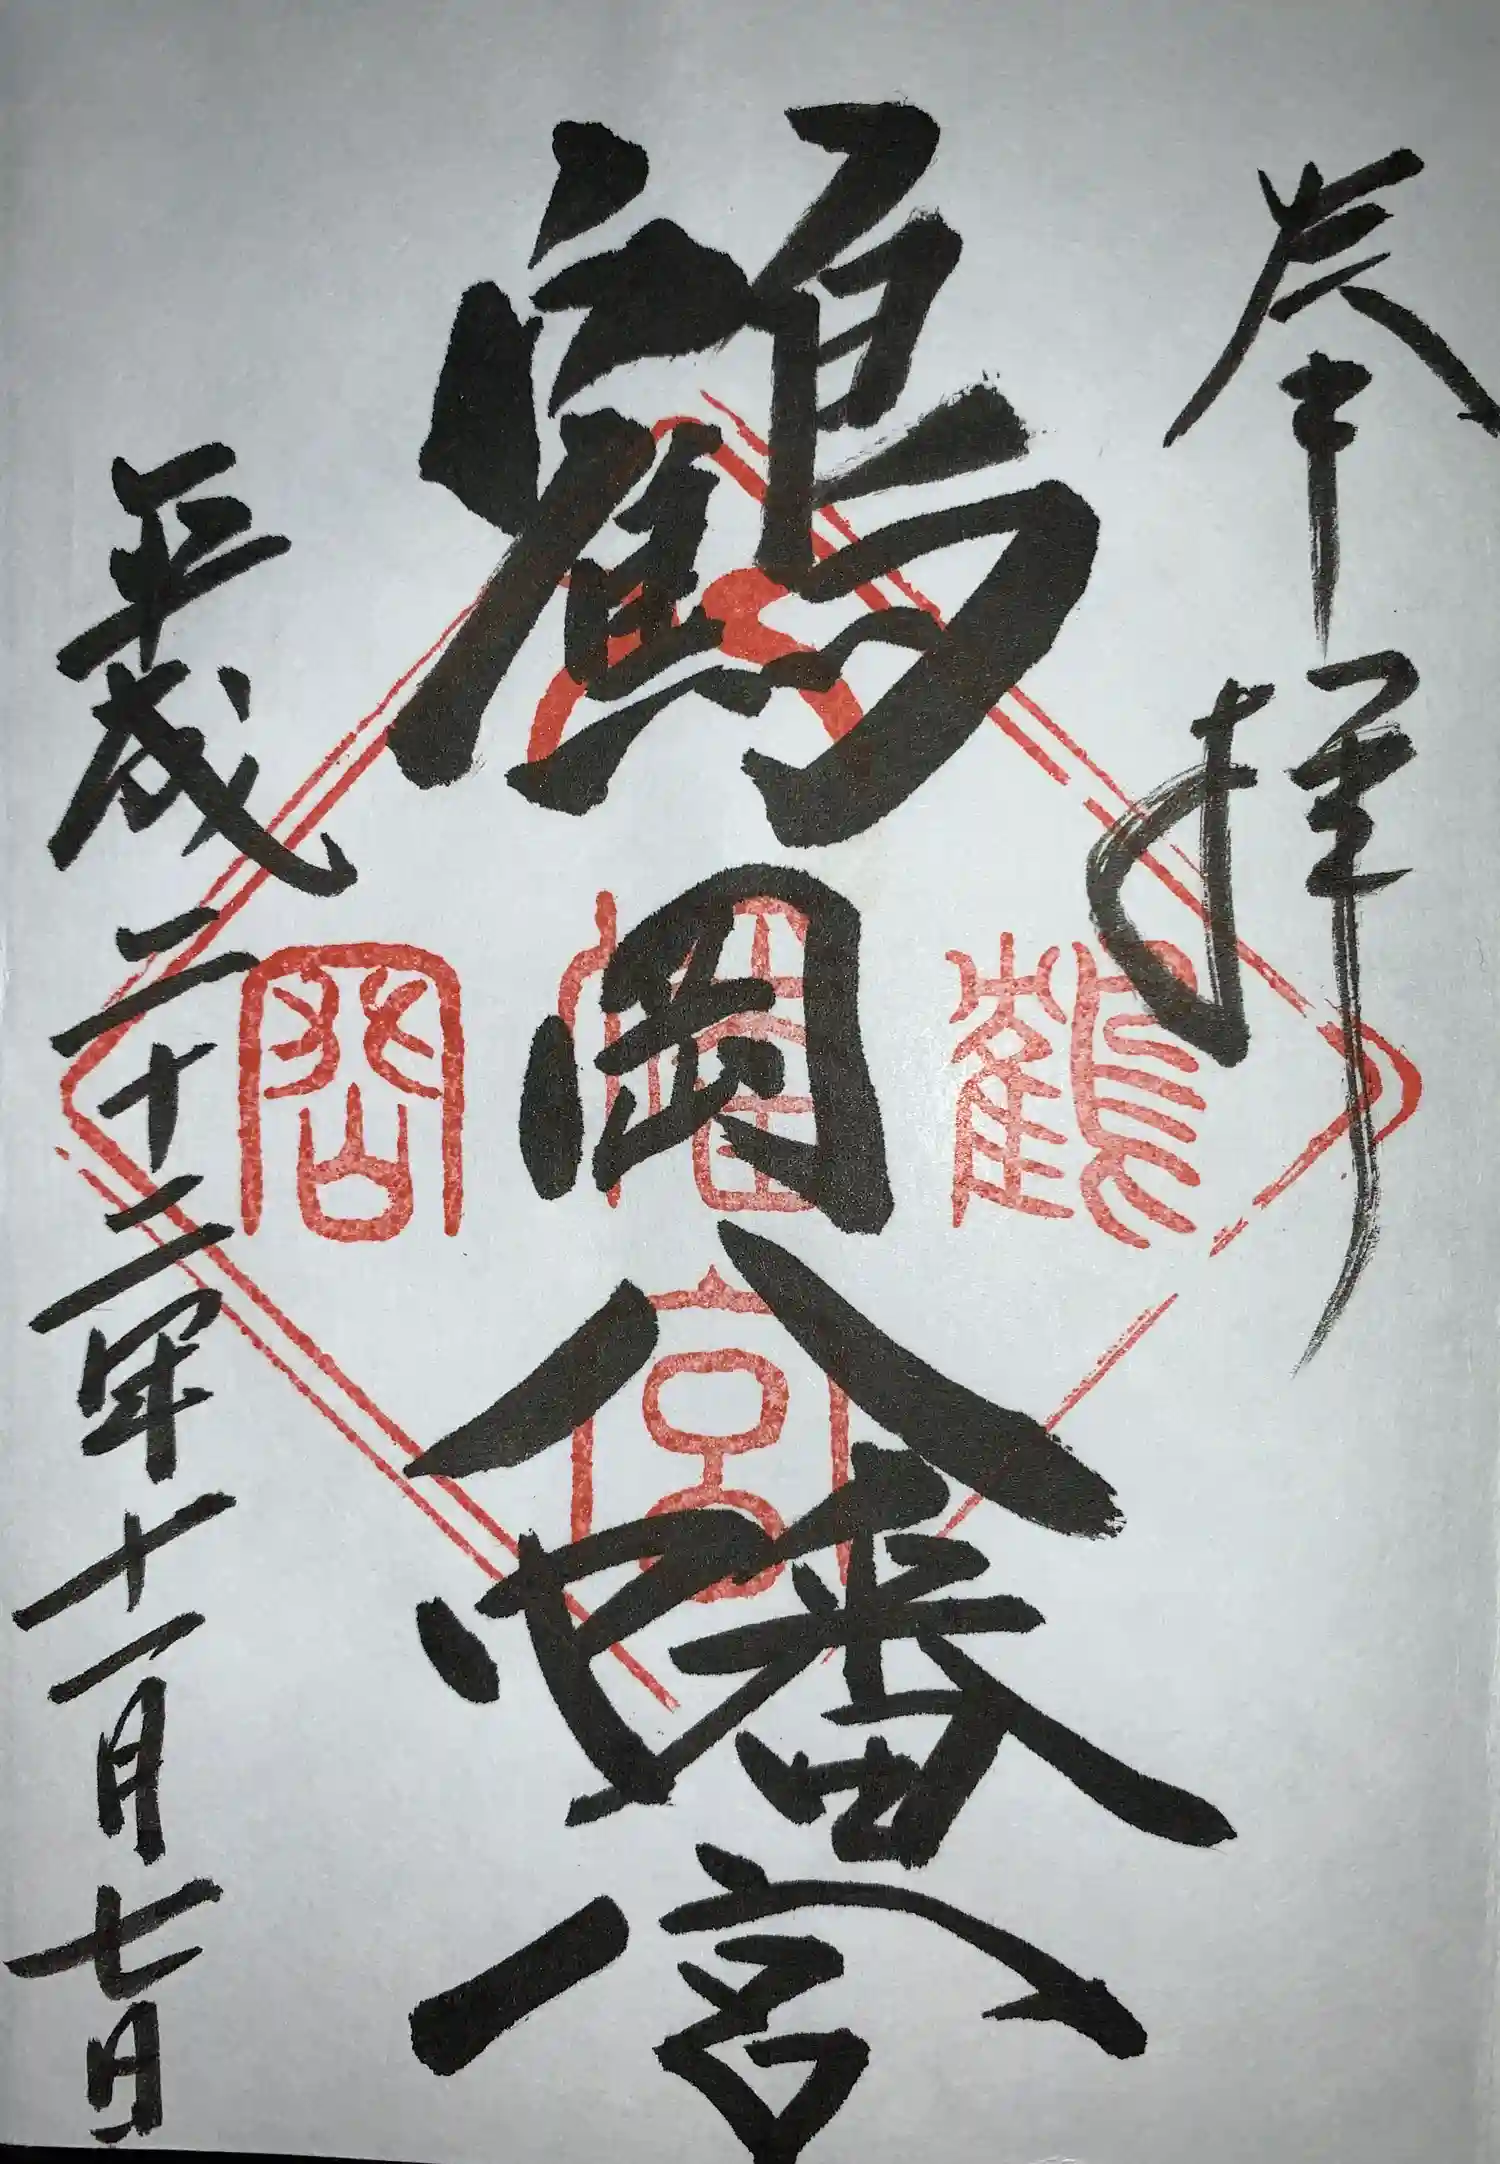 奉拝
鶴岡八幡宮
平成二十二年十一月七日
鶴
岡
幡
宮